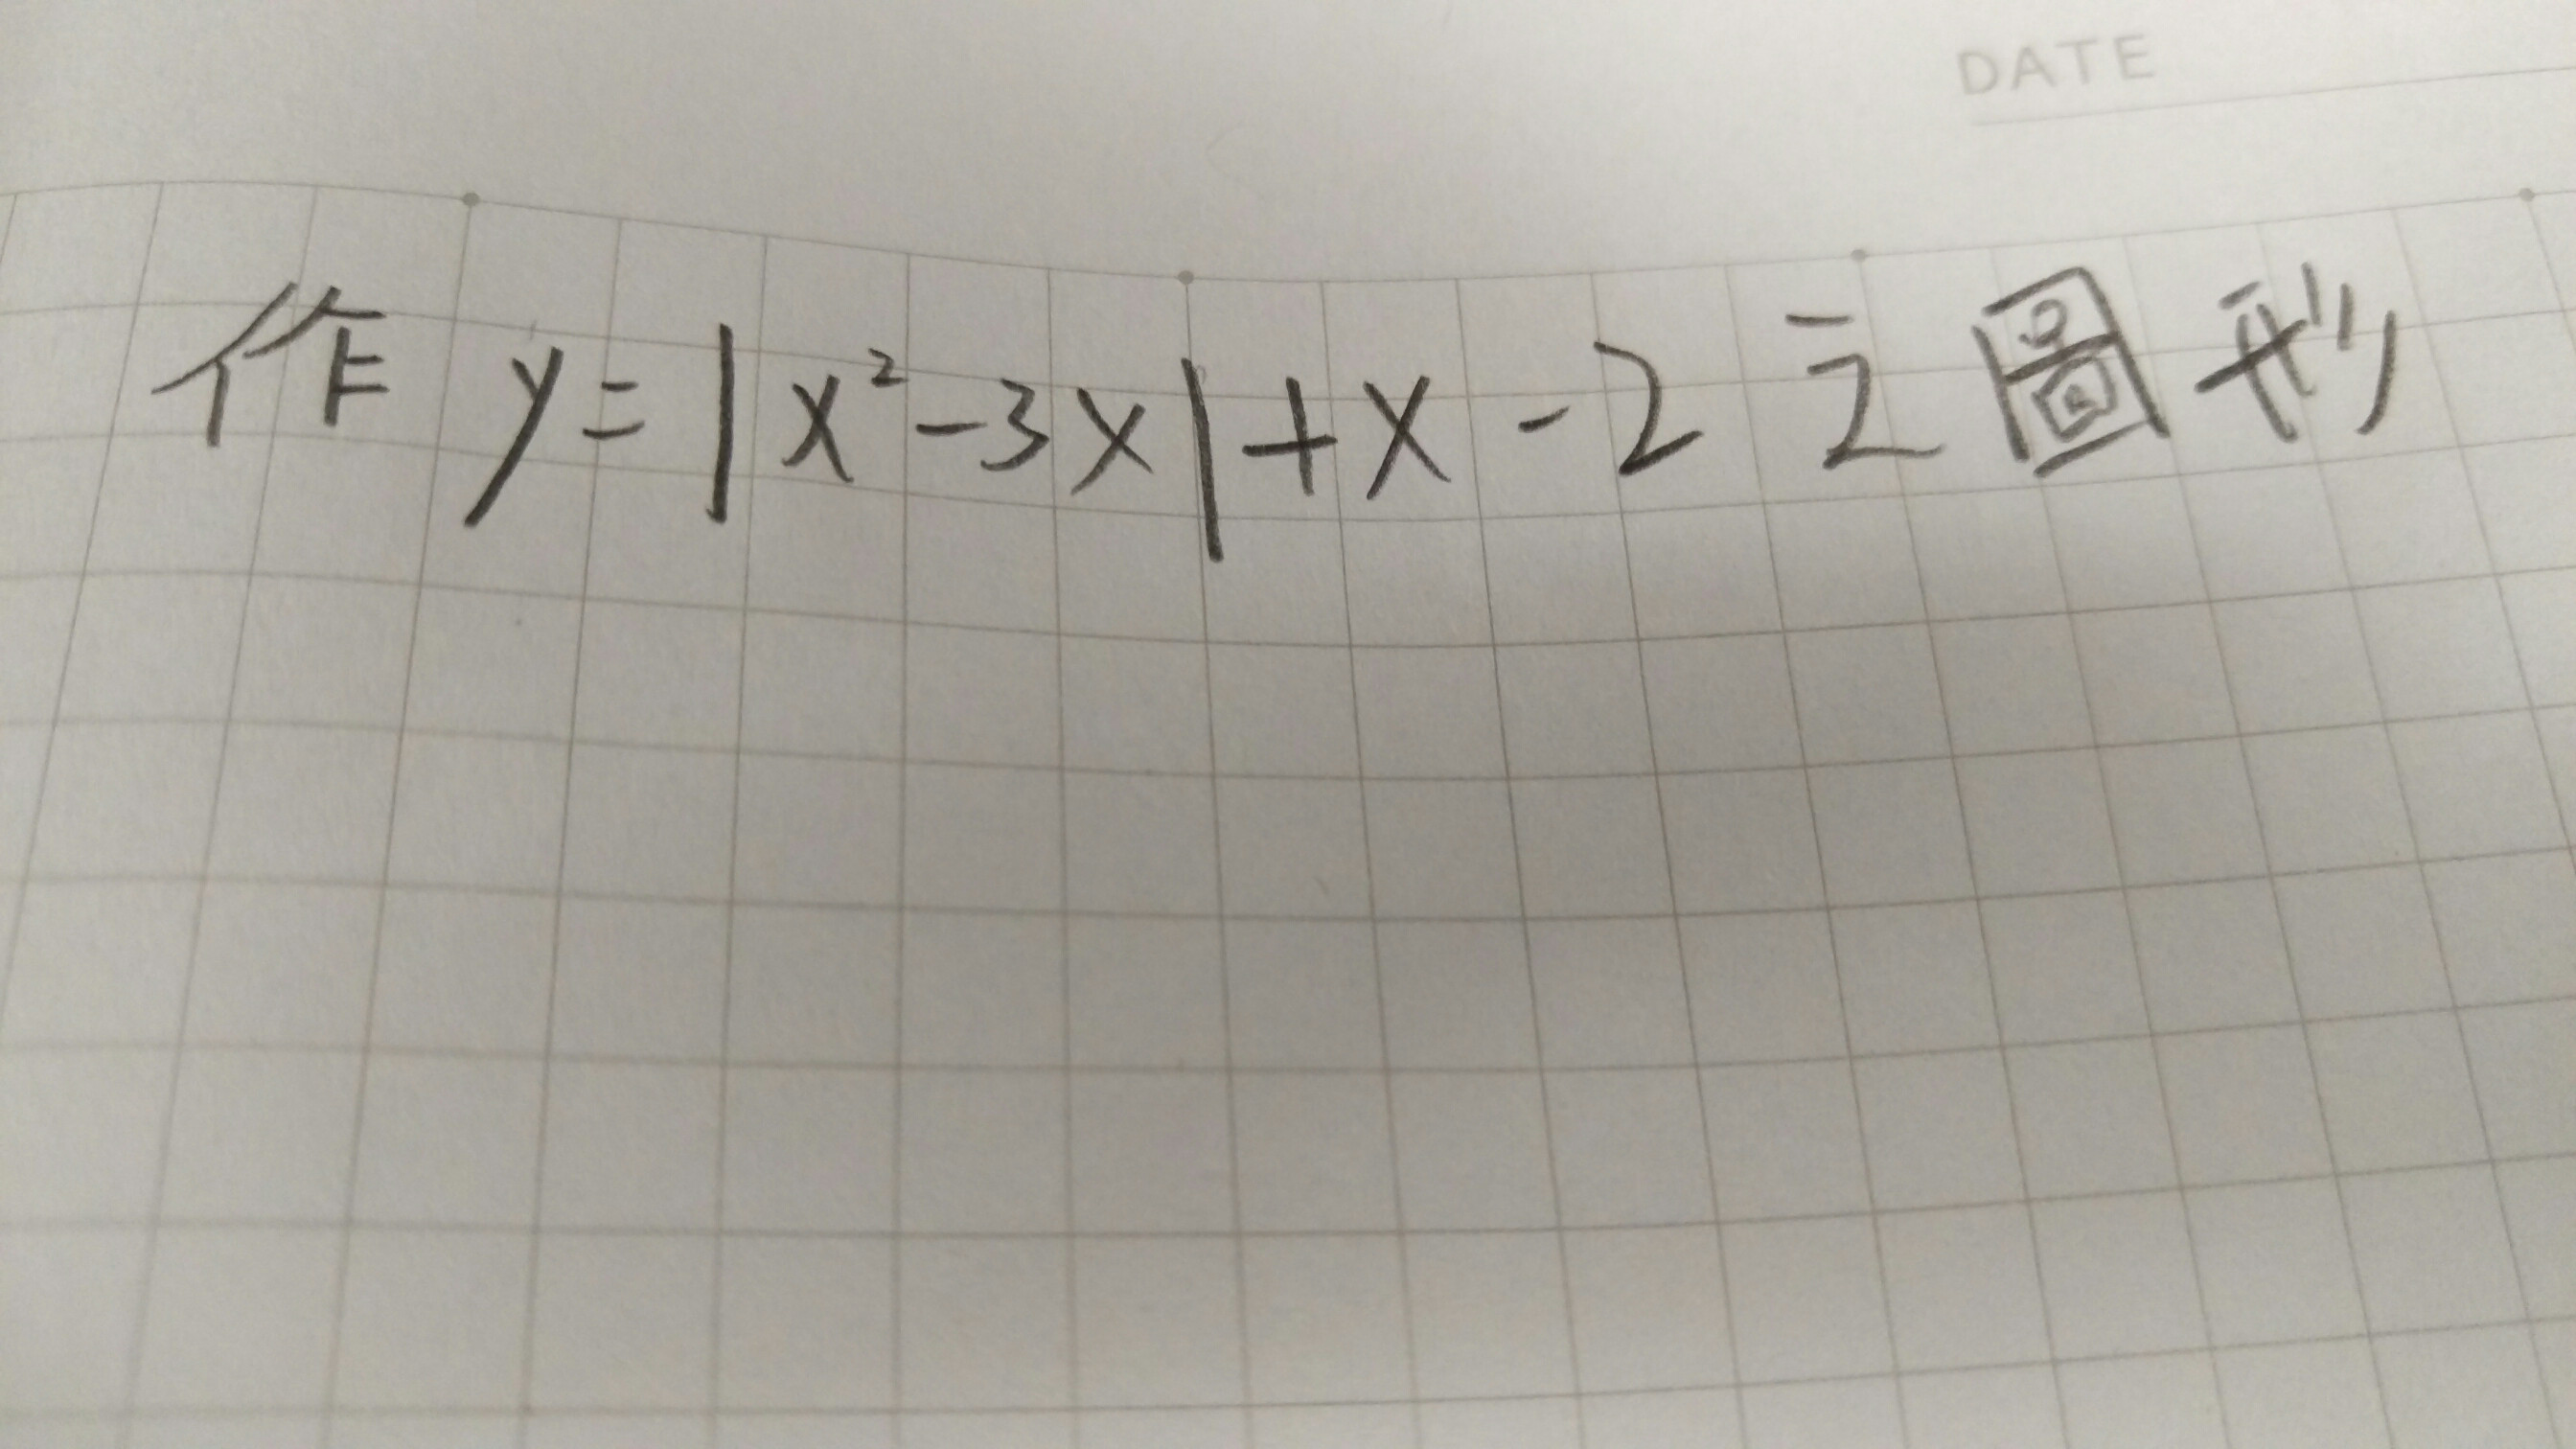 DATE
作 y=|x²-3x|+x-2 之圖形